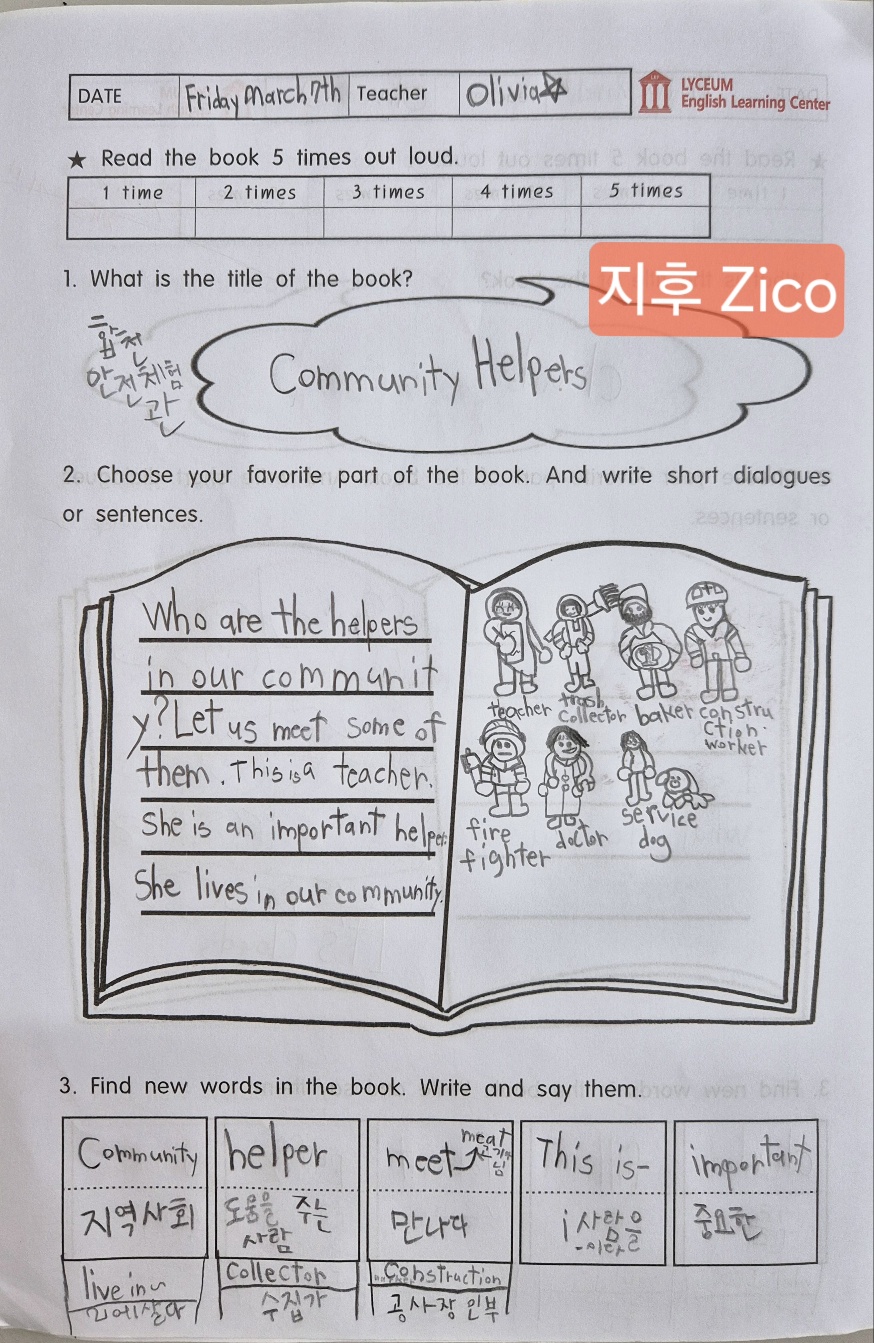 DATE Friday March 7th Teacher Olivia
LYCEUM
English Learning Center
★ Read the book 5 times out loud.
1 time 2 times 3 times 4 times 5 times
1. What is the title of the book?
지후 Zico
안전체험
관
Community Helpers
2. Choose your favorite part of the book. And write short dialogues
or sentences.
Who are the helpers
in our communit
y? Let us meet some of
them. This is a teacher.
She is an important helper.
She lives in our community.
teacher trash collector baker constru
ction
worker
fire
fighter
doctor
service
dog
3. Find new words in the book. Write and say them.
Community helper meet meat This is~ important
지역사회 도움을 주는 만나다 중요한
사람
live in~ Collector Construction
수집가 공사장 인부